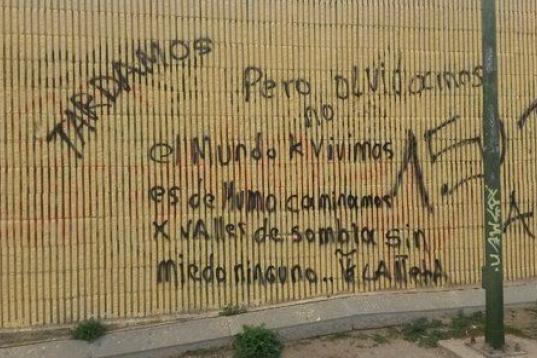 TARDAMOS
Pero olvidamos
no
el Mundo K Vivimos
es de Humo caminamos
x valles de sombra sin
miedo ninguno..
15
A